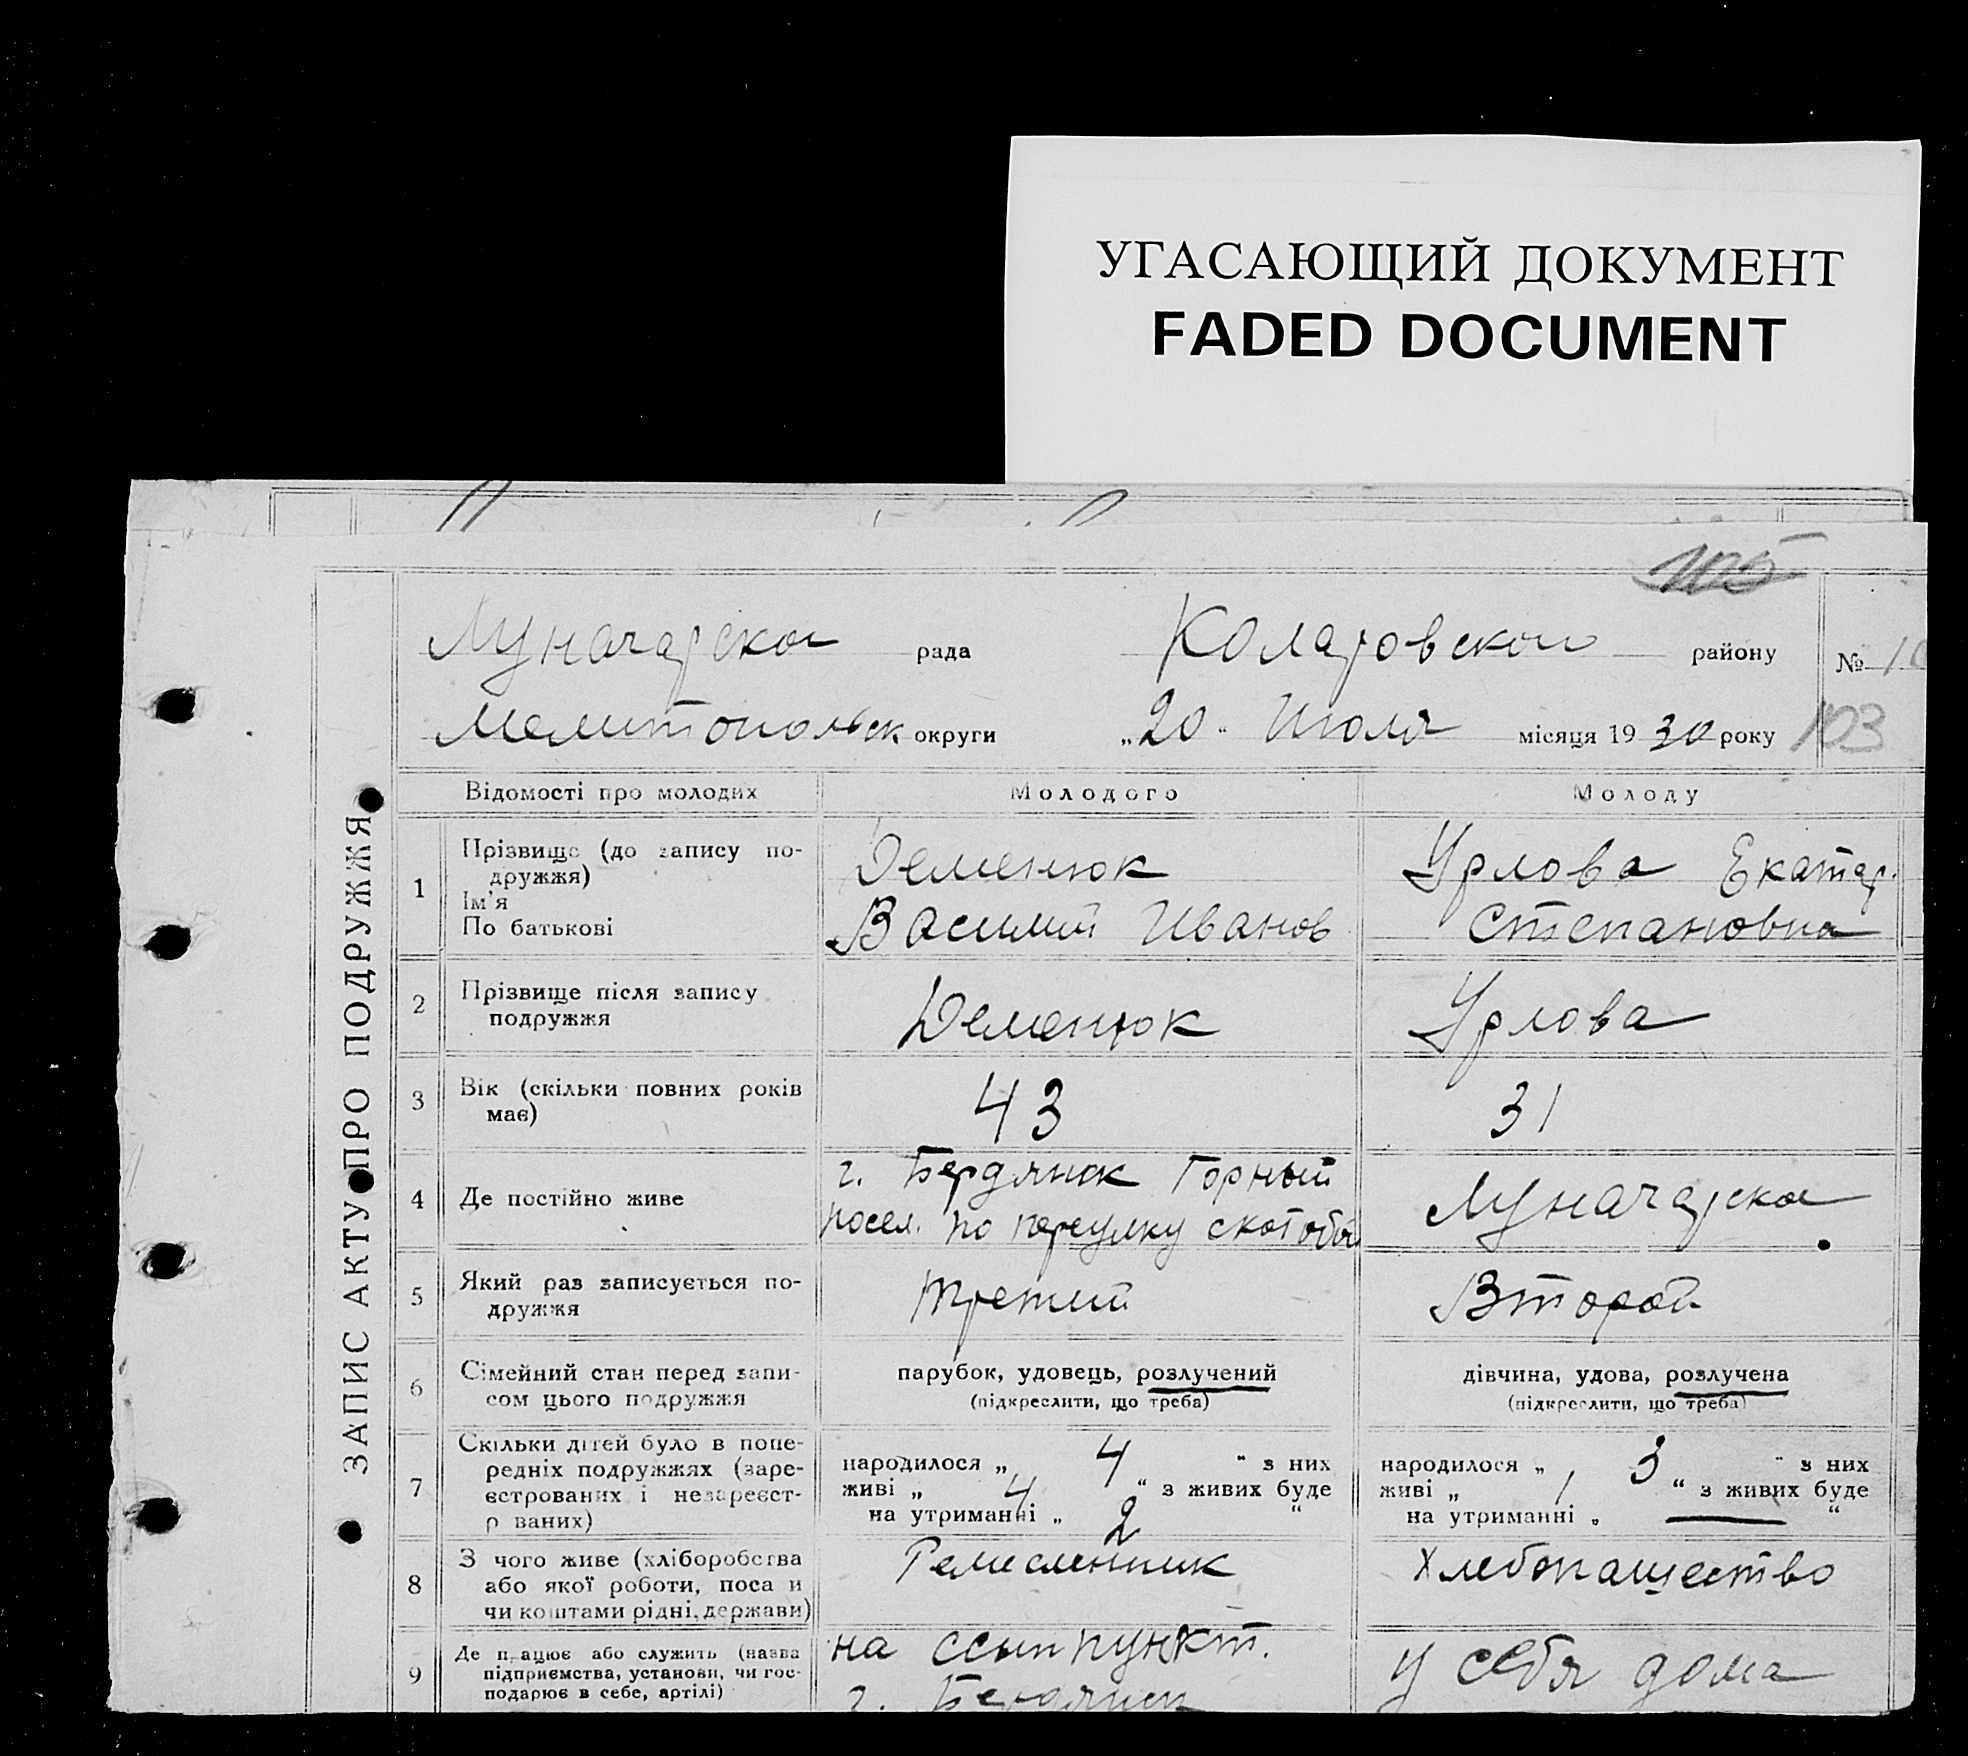 УГАСАЮЩИЙ ДОКУМЕНТ
FADED DOCUMENT
105
Луначарска рада Коларовского району № 10
Мелитопольск округи „20“ Июля місяця 1930 року 103
ЗАПИС АКТУ ПРО ПОДРУЖЖЯ
Відомості про молодих Молодого Молоду
1 Прізвище (до запису по-
дружжя)
Ім'я
По батькові
Деменюк
Василий Иванов
Урлова Екатер.
Степановна
2 Прізвище після запису
подружжя
Деменюк
Урлова
3 Вік (скільки повних років
має)
43
31
4 Де постійно живе
г. Бердянск Горный
посел. по переулку скотобой
Луначарска
5 Який раз записується по-
дружжя
третий
Второй
6 Сімейний стан перед запи-
сом цього подружжя
парубок, удовець, розлучений
(підкреслити, що треба)
дівчина, удова, розлучена
(підкреслити, що треба)
7 Скільки дітей було в попе-
редніх подружжях (заре-
єстрованих і незареєст-
р ваних)
народилося „ 4 “ з них
живі „ 4 “ з живих буде
на утриманні „ 2 “
народилося „ 3 “ з них
живі „ 1 “ з живих буде
на утриманні „ — “
8 З чого живе (хліборобства
або якої роботи, поса и
чи коштами рідні, держави)
Ремесленник
Хлебопашество
9 Де працює або служить (назва
підприємства, установи, чи гос-
подарює в себе, артілі)
на ссыппункт.
г. Бердянск
у себя дома